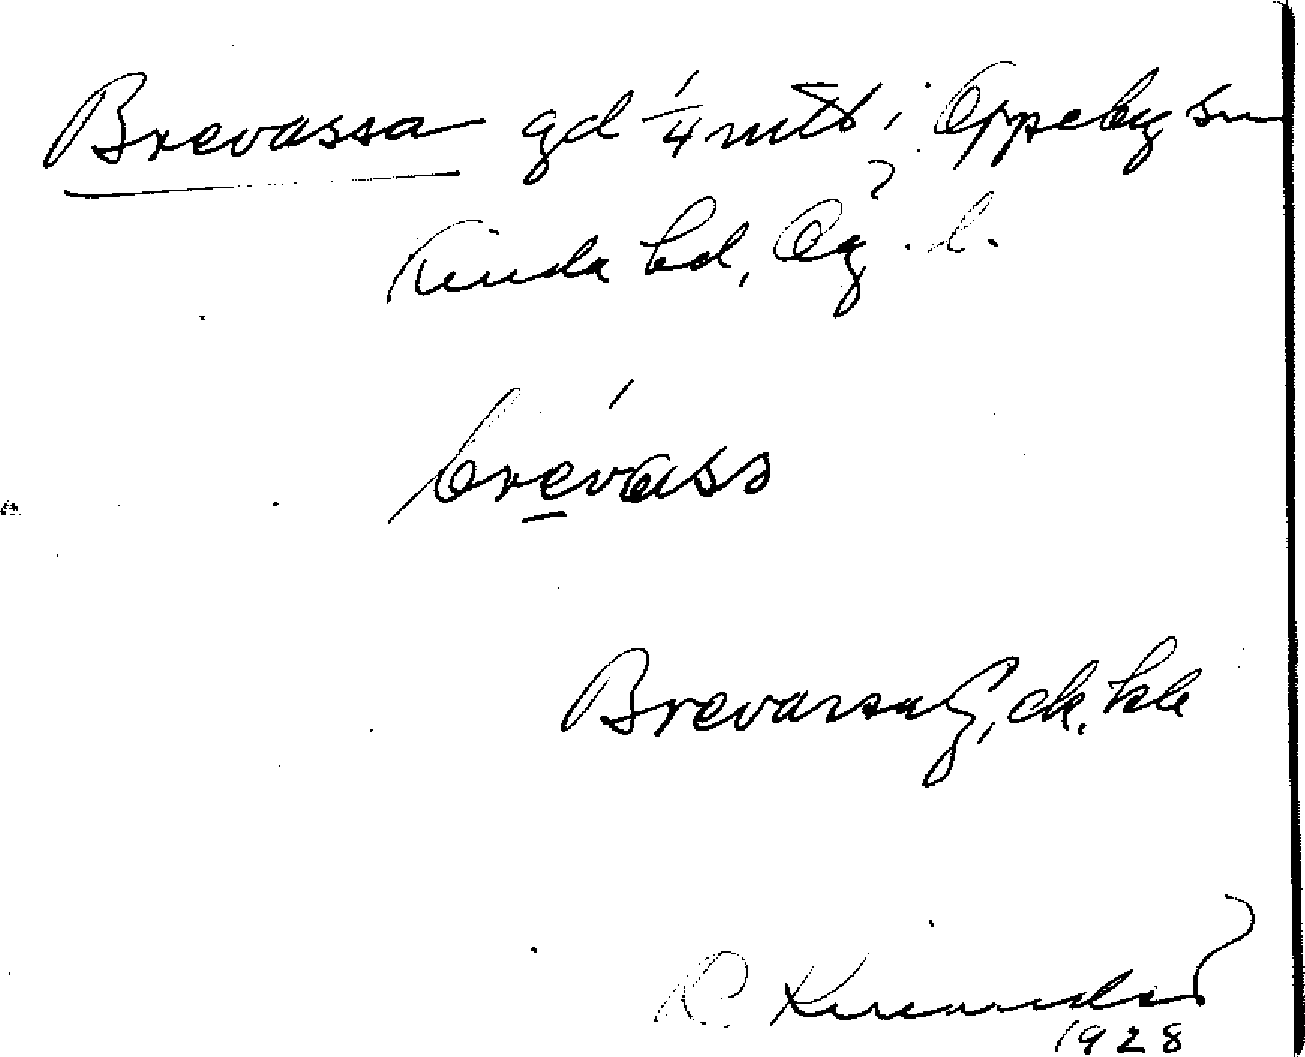 Brevassa gd 1/4 mtl i Oppeby sn
Kinda hd, Ög. l.
brevass
Brevassa G, ek. kla
1928